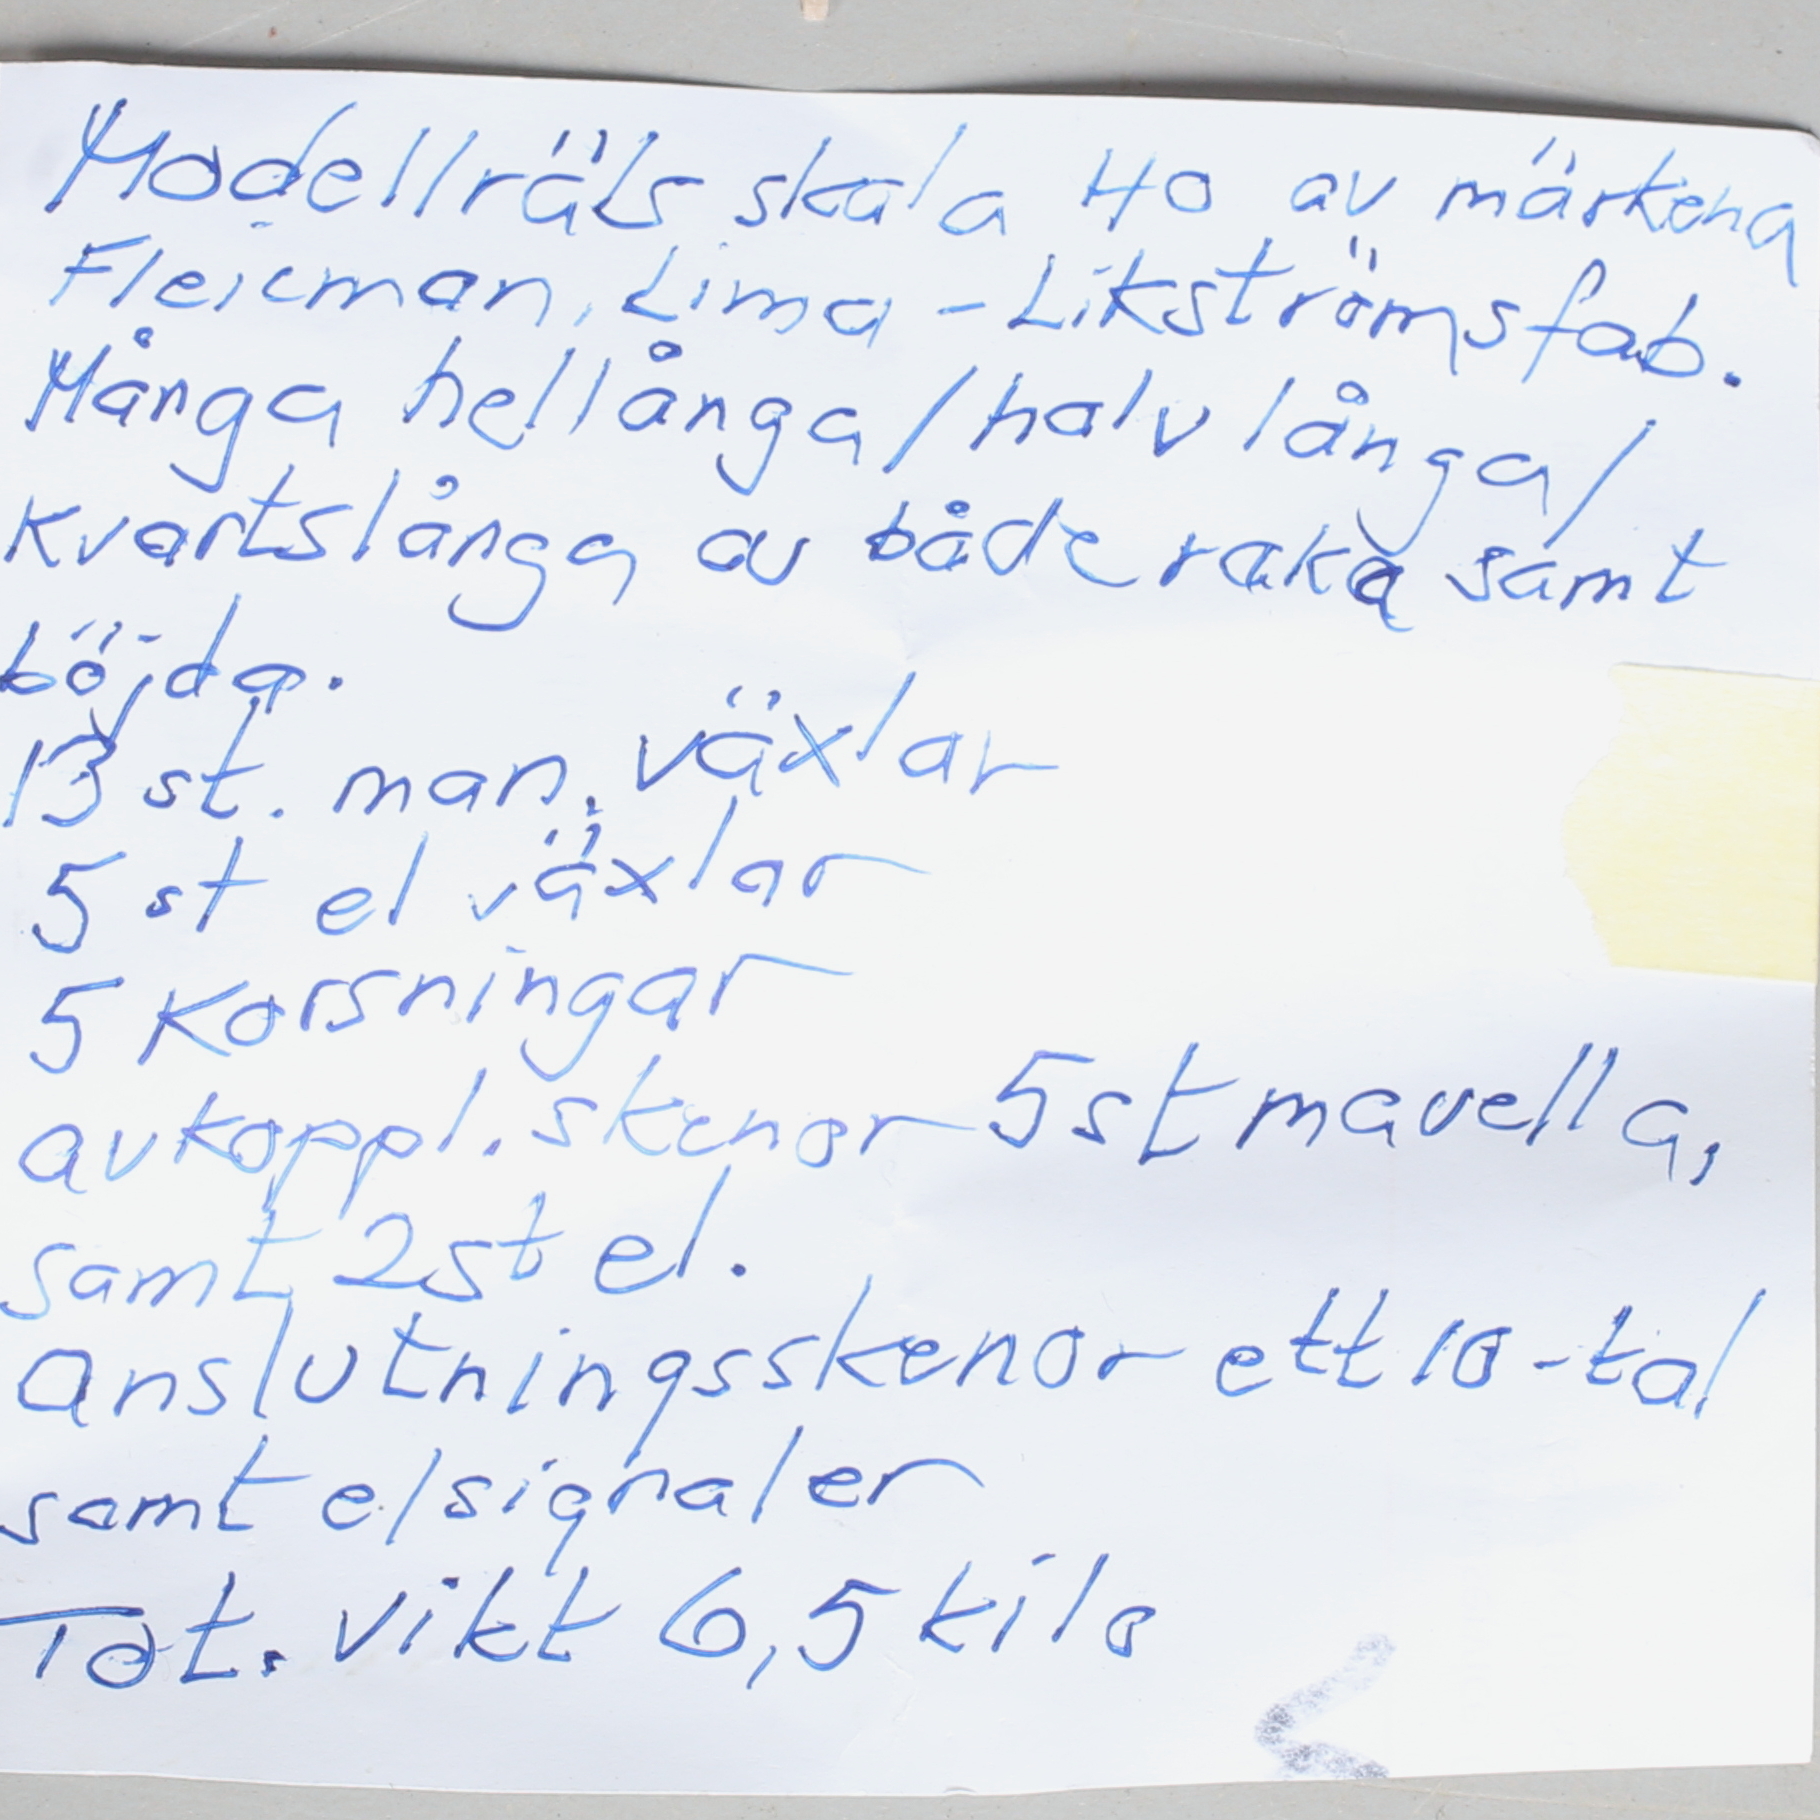 Modellräls skala HO av märkena
Fleicman, Lima - Likströmsfab.
Många hellånga/halvlånga/
kvartslånga av både raka samt
böjda.
13 st. man. växlar
5 st el växlar
5 Korsningar
avkoppl. skenor 5 st mauella,
samt 2 st el.
Anslutningsskenor ett 10-tal
samt elsignaler
Tot. vikt 6,5 kilo